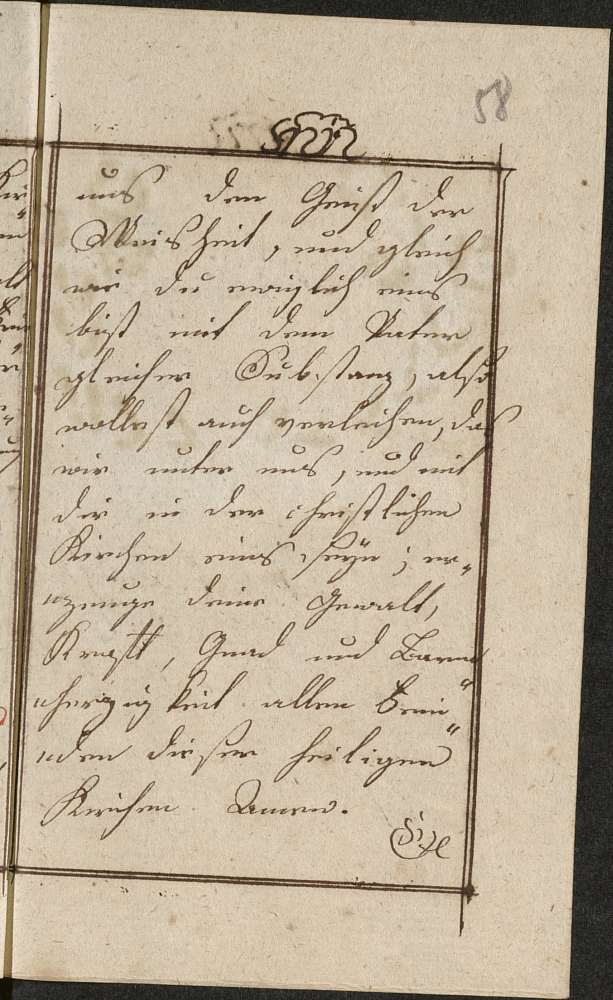 58
uns den Geist der
Weisheit, und gleich
wie du ewiglich eins
bist mit dem Vater
gleicher Substanz, also
wollest auch verleihen, daß
wir unter uns, und mit
dir in der christlichen
Kirchen eins seyn; er„
„zeuge deine Gewalt,
Krafft, Gnad und Barm„
„herzigkeit allen
„den dieser heiligen
Kirchen Amen.